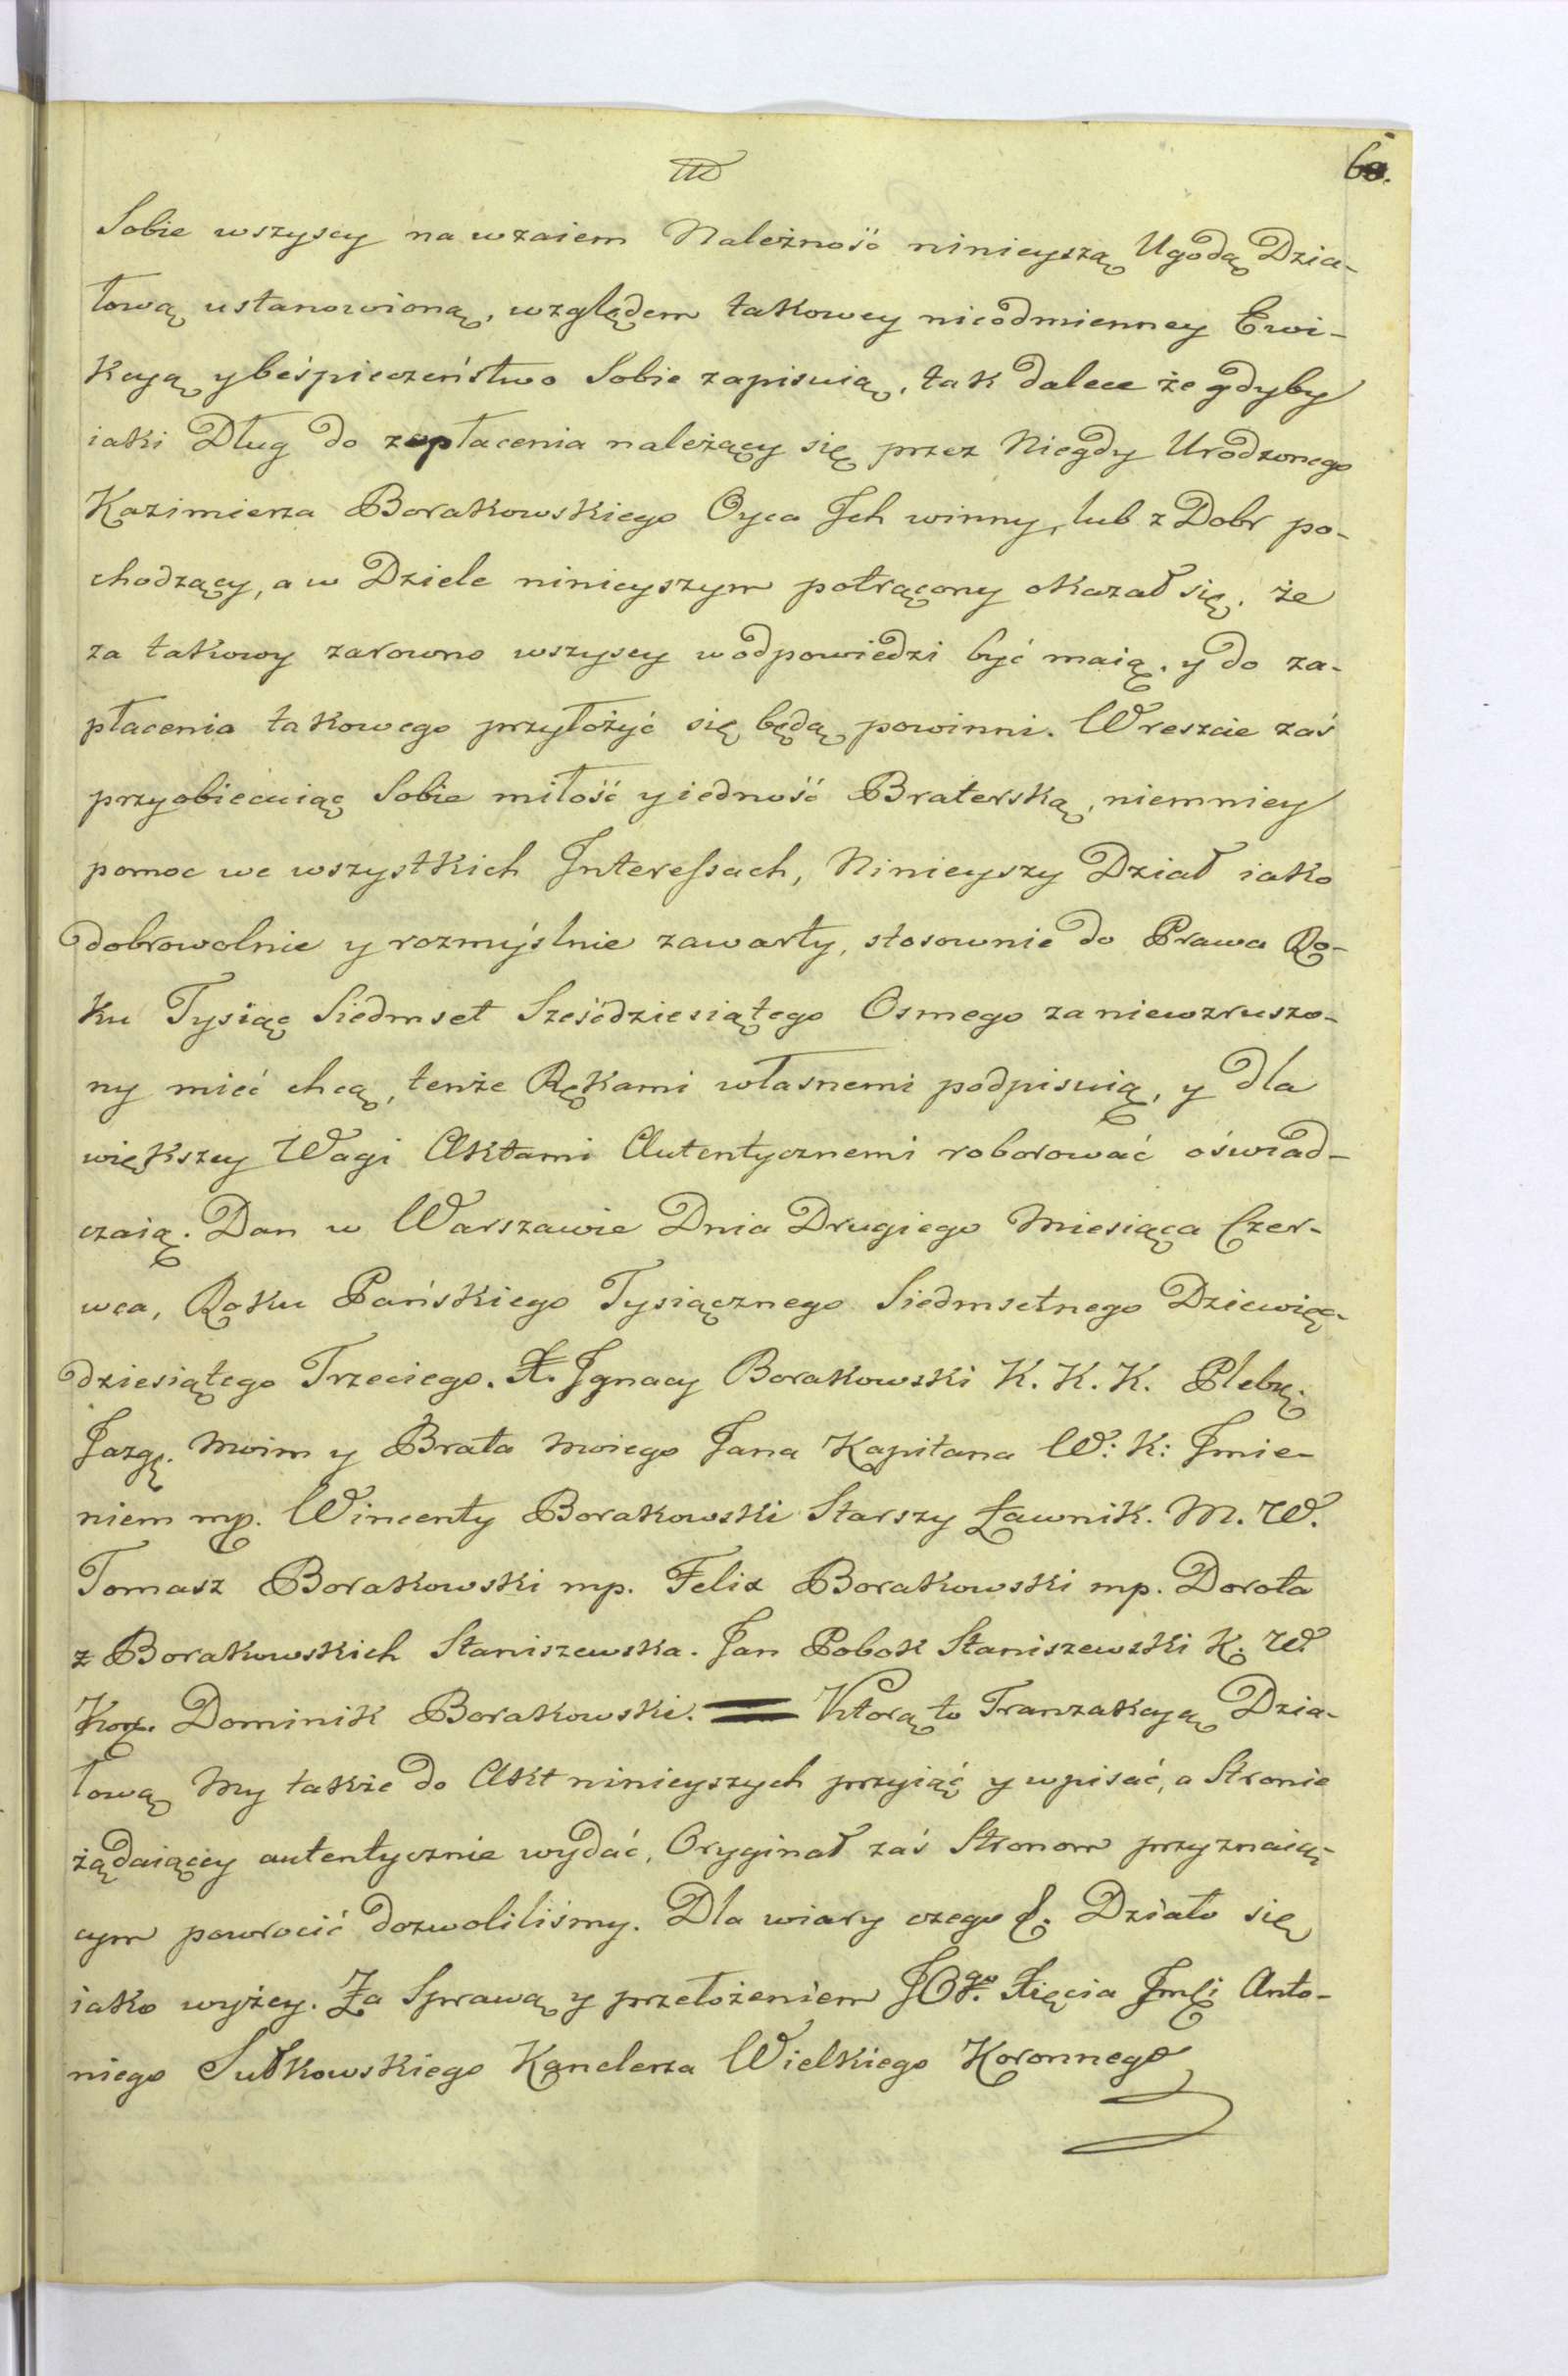 Sobie wszyscy nawzaiem Należność ninieyszą Ugodą Dzia-
łową ustanowioną, względem takowey nieodmienney Ewi-
kcyą y beśpieczeństwo Sobie zapisuią, tak dalece że gdyby
iaki Dług do zapłacenia należący się przez Niegdy Urodzonego
Kazimierza Borakowskiego Oyca Ich winny, lub z Dobr po-
chodzący, a w Dziele ninieyszym potrącony okazał się, że
za takowy zarowno wszyscy w odpowiedzi być maią, y do za-
płacenia takowego przyłożyć się będą powinni. Wreszcie zaś
przyobiecuiąc Sobie miłość y iedność Braterską, niemniey
pomoc we wszystkich Interessach, Ninieyszy Dział iako
dobrowolnie y rozmyślnie zawarty, stosownie do Prawa Ro-
ku Tysiąc Siedmset Sześćdziesiątego Osmego za niewzruszo-
ny mieć chcą, tenże Rękami własnemi podpisuią, y dla
większey Wagi Aktami Autentycznemi roborować oświad-
czaią. Dan w Warszawie Dnia Drugiego Miesiąca Czer-
wca, Roku Pańskiego Tysiącznego Siedmsetnego Dziewięć-
dziesiątego Trzeciego. X. Ignacy Borakowski K. K. K. Plebą.
Jazgę. Moim y Brata Moiego Jana Kapitana W: K: Imie-
niem mp. Wincenty Borakowski Starszy Ławnik. M. W.
Tomasz Borakowski mp. Felix Borakowski mp. Dorota
z Borakowskich Staniszewska. Jan Pobok Staniszewski K. W
Kor. Dominik Borakowski. = Którą to Tranzakcyą Dzia-
łową My także do Akt ninieyszych przyiąć y wpisać, a Stronie
żądaiącey autentycznie wydać, Oryginał zaś Stronom przyznaią-
cym powrocić dozwoliliśmy. Dla wiary czego &. Działo się
iako wyżey. Za Sprawą y przełożeniem JOgo. Xięcia Jmci Anto-
niego Sułkowskiego Kanclerza Wielkiego Koronnego